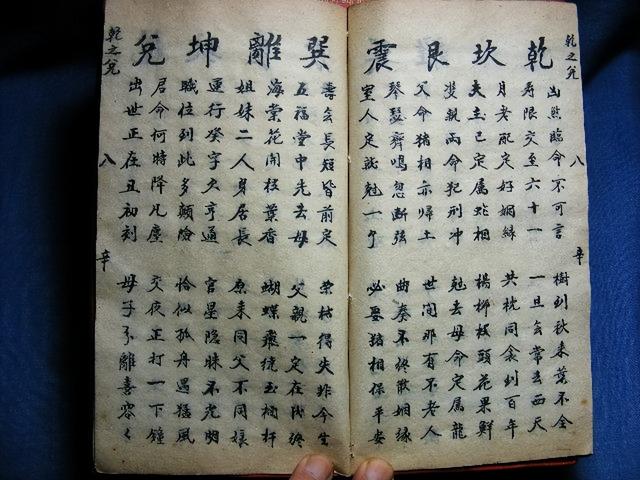 乾之兌
八
辛
乾 坎 艮 震
凶煞臨命不可言 樹到秋來葉不全
寿限交至六十一 一旦无常去西天
月老配定好姻緣 共枕同衾到百年
夫主已定属蛇相 楊柳枝頭花果鮮
双親兩命犯刑冲 尅去母命定属龍
父命猪相亦歸土 世间那有不老人
琴瑟齊鳴忽断弦 曲奏不終散姻緣
室人定就尅一个 必要猪相保平安
巽 離 坤 兌
壽長短皆前定 荣枯得失非今生
五福堂中先去母 父親一定在後终
海棠花開枝葉香 蝴蝶飛繞玉欄杆
姐妹二人身居長 原来同父不同娘
運行癸字大亨通 官星隐昧不光明
職位到此多顛險 恰似孤舟遇猛風
君命何時降凡塵 交夜正打一下鐘
出世正在丑初刻 母子分離喜容々
乾之兌
八
辛